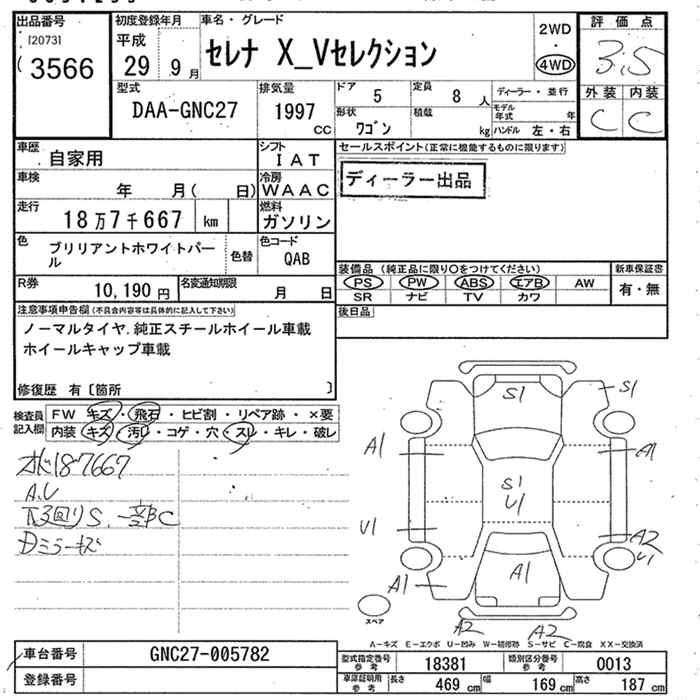 出品番号
[2073]
3566
初度登録年月
平成
29 9月
車名・グレード
セレナ X_Vセレクション
2WD
・
4WD
評価点
3.5
外装 内装
C C
型式
DAA-GNC27
排気量
1997
cc
ドア 5
定員 8 人
形状 ワゴン
積載 kg
ディーラー・並行
モデル年式 年
ハンドル 左・右
車歴 自家用
シフト IAT
車検 年 月( 日)
冷房 WAAC
走行 18万7千667 km
燃料 ガソリン
色 ブリリアントホワイトパール
色替
色コード QAB
R券 10,190円
名変通知期限 月 日
セールスポイント(正常に機能するものに限ります)
ディーラー出品
装備品(純正品に限り〇をつけてください)
新車保証書
PS PW ABS エアB AW
有・無
SR ナビ TV カワ
後日品
注意事項申告欄(不具合内容等は具体的に記入して下さい)
ノーマルタイヤ.純正スチールホイール車載
ホイールキャップ車載
修復歴 有〔箇所 〕
検査員記入欄
FW キズ・飛石・ヒビ割・リペア跡・×要
内装 キズ・汚れ・コゲ・穴・スレ・キレ・破レ
187667
A.U
下回りS.一部C
Dミラーキズ
S1
S1
A1
A1
S1
U1
U1
A2
U1
A1
A1
A2
A2
スペア
A-キズ E-エクボ U-凹み W-補修跡 S-サビ C-腐食 XX-交換済
車台番号 GNC27-005782
登録番号
型式指定番号参考 18381
類別区分番号参考 0013
車庫証明用参考
長さ 469 cm
幅 169 cm
高さ 187 cm